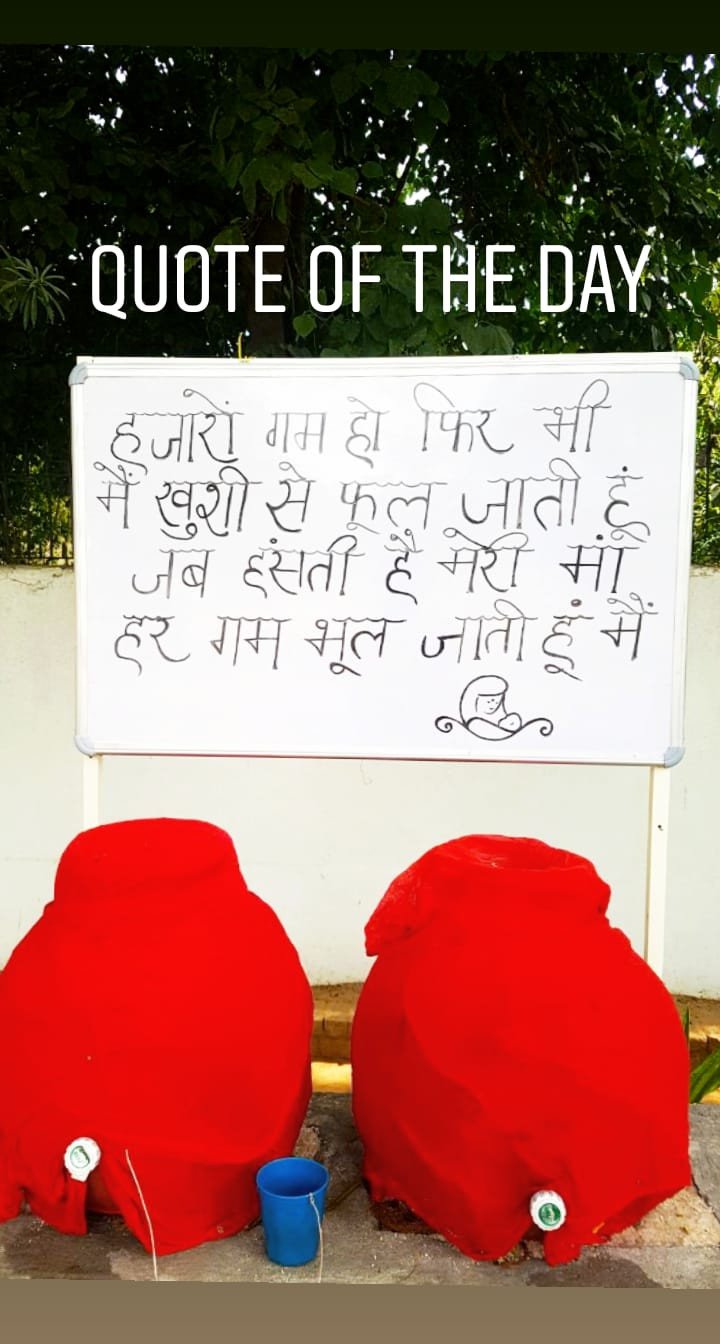 QUOTE OF THE DAY
हजारों गम हो फिर भी
मैं खुशी से फूल जाती हूं
जब हंसती है मेरी मां
हर गम भूल जाती हूं मैं